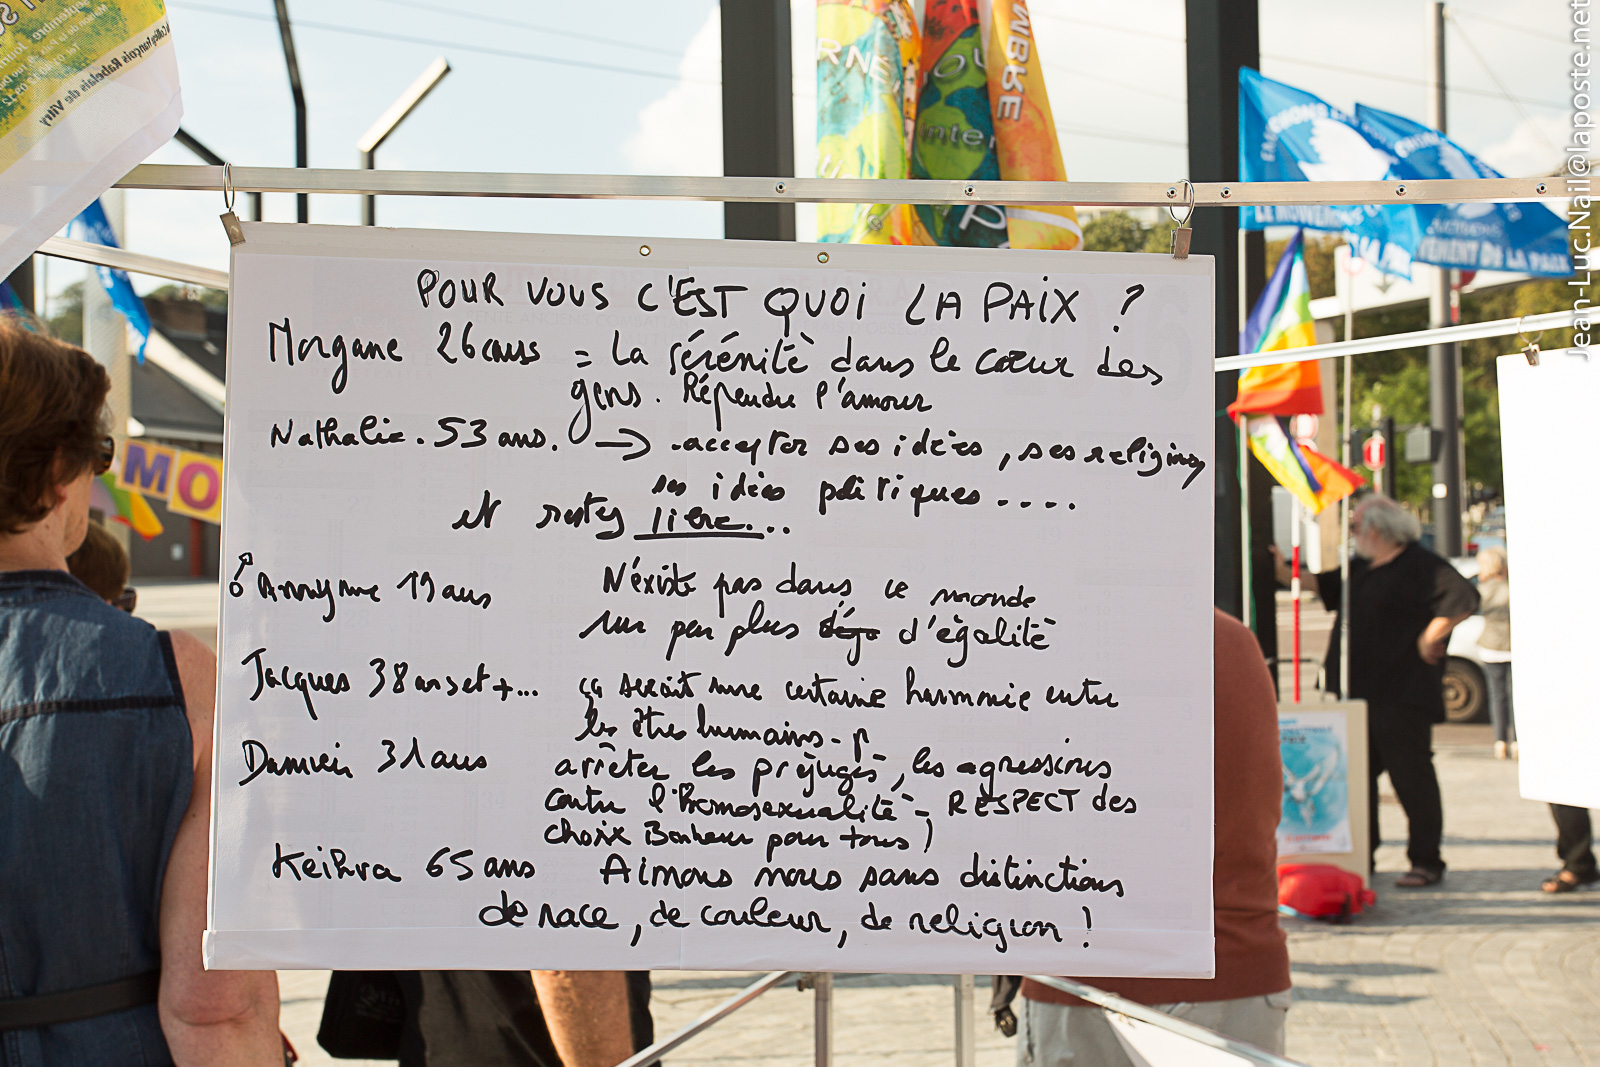 POUR VOUS C'EST QUOI LA PAIX ?
Morgane 26 ans = La sérénité dans le cœur des
gens. Répendre l'amour
Nathalie. 53 ans. → accepter ses idées, ses religions
ses idées politiques ....
et restez libre...
♂ Anonyme 19 ans N'éxiste pas dans ce monde
un peu plus déja d'égalité
Jacques 38 ans et +... ça serait une certaine harmonie entre
les êtres humains.
Damien 31 ans arrêter les préjugés, les agressions
contre l'homosexualité - RESPECT des
choix Bonheur pour tous !
Keihra 65 ans Aimons nous sans distinctions
de race, de couleur, de religion !
Jean-Luc.Nail@laposte.net
François Rabelais de Vitry
MO
RNE
OU
inter
MBRE
P
LE MOUVEMENT
LA PAIX
MOUVEMENT DE LA PAIX